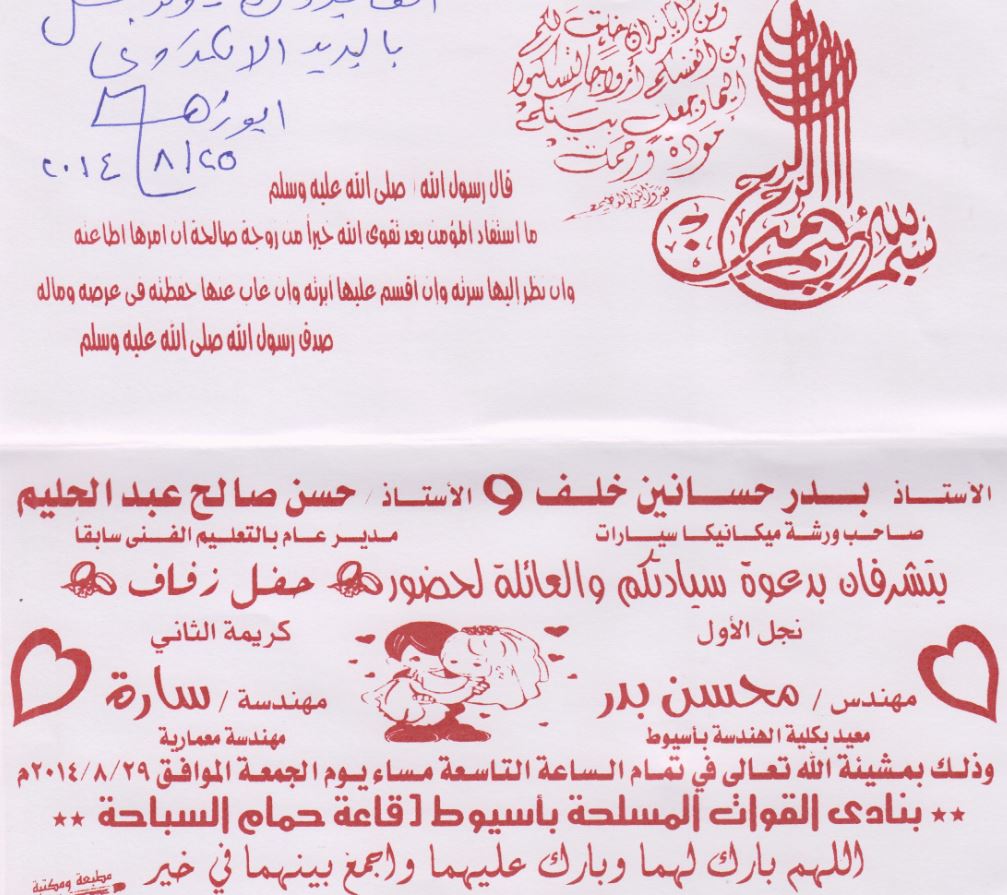 بالبريد الالكتروني
٢٠١٤/٨/٢٥
ومن آياته أن خلق لكم
من أنفسكم أزواجا لتسكنوا
إليها وجعل بينكم
مودة ورحمة
صدق الله العظيم
بسم الله الرحمن الرحيم
قال رسول الله / صلى الله عليه وسلم
ما استفاد المؤمن بعد تقوى الله خيراً من زوجة صالحة ان امرها اطاعته
وان نظر إليها سرته وان اقسم عليها ابرته وان غاب عنها حفظته فى عرضه وماله
صدق رسول الله صلى الله عليه وسلم
الأستاذ بدر حسانين خلف و الأستاذ / حسن صالح عبد الحليم
صاحب ورشة ميكانيكا سيارات مدير عام بالتعليم الفنى سابقاً
يتشرفان بدعوة سيادتكم والعائلة لحضور حفل زفاف
نجل الأول كريمة الثاني
مهندس / محسن بدر مهندسة / سارة
معيد بكلية الهندسة بأسيوط مهندسة معمارية
وذلك بمشيئة الله تعالى في تمام الساعة التاسعة مساء يوم الجمعة الموافق ٢٠١٤/٨/٢٩م
** بنادى القوات المسلحة بأسيوط [ قاعة حمام السباحة **
اللهم بارك لهما وبارك عليهما واجمع بينهما في خير
مطبعة ومكتبة